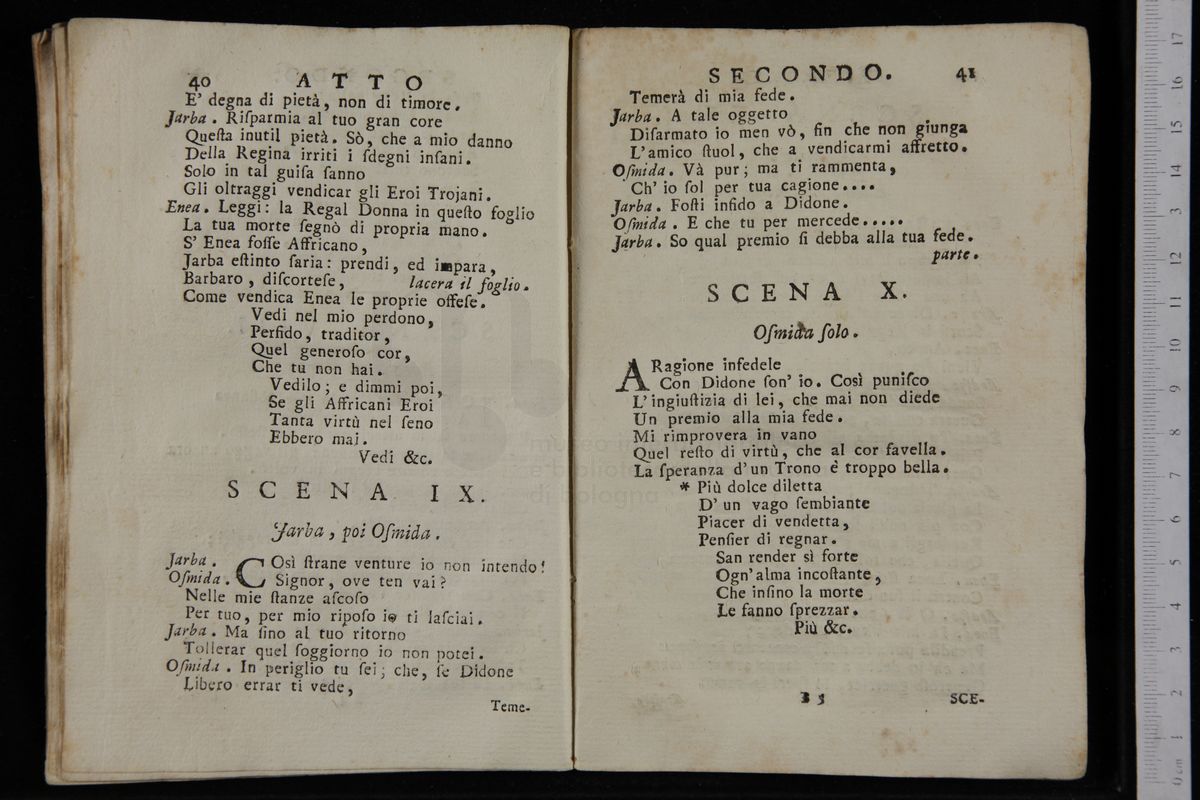 40 ATTO
E' degna di pietà, non di timore.
Jarba. Riſparmia al tuo gran core
Queſta inutil pietà. Sò, che a mio danno
Della Regina irriti i ſdegni inſani.
Solo in tal guiſa ſanno
Gli oltraggi vendicar gli Eroi Trojani.
Enea. Leggi: la Regal Donna in queſto foglio
La tua morte ſegnò di propria mano.
S' Enea foſſe Affricano,
Jarba eſtinto ſaria: prendi, ed impara,
Barbaro, diſcorteſe, lacera il foglio.
Come vendica Enea le proprie offeſe.
Vedi nel mio perdono,
Perfido, traditor,
Quel generoſo cor,
Che tu non hai.
Vedilo; e dimmi poi,
Se gli Affricani Eroi
Tanta virtù nel ſeno
Ebbero mai.
Vedi &c.
SCENA IX.
Jarba, poi Oſmida.
Jarba. COsì ſtrane venture io non intendo!
Oſmida. Signor, ove ten vai?
Nelle mie ſtanze aſcoſo
Per tuo, per mio ripoſo io ti laſciai.
Jarba. Ma ſino al tuo ritorno
Tollerar quel ſoggiorno io non potei.
Oſmida. In periglio tu ſei; che, ſe Didone
Libero errar ti vede,
Teme-
SECONDO. 41
Temerà di mia fede.
Jarba. A tale oggetto
Diſarmato io men vò, fin che non giunga
L'amico ſtuol, che a vendicarmi affretto.
Oſmida. Và pur; ma ti rammenta,
Ch' io ſol per tua cagione....
Jarba. Foſti infido a Didone.
Oſmida. E che tu per mercede.....
Jarba. So qual premio ſi debba alla tua fede.
parte.
SCENA X.
Oſmida ſolo.
A Ragione infedele
Con Didone ſon' io. Così puniſco
L'ingiuſtizia di lei, che mai non diede
Un premio alla mia fede.
Mi rimprovera in vano
Quel reſto di virtù, che al cor favella.
La ſperanza d'un Trono è troppo bella.
* Più dolce diletta
D' un vago ſembiante
Piacer di vendetta,
Penſier di regnar.
San render sì forte
Ogn'alma incoſtante,
Che inſino la morte
Le fanno ſprezzar.
Più &c.
SCE-